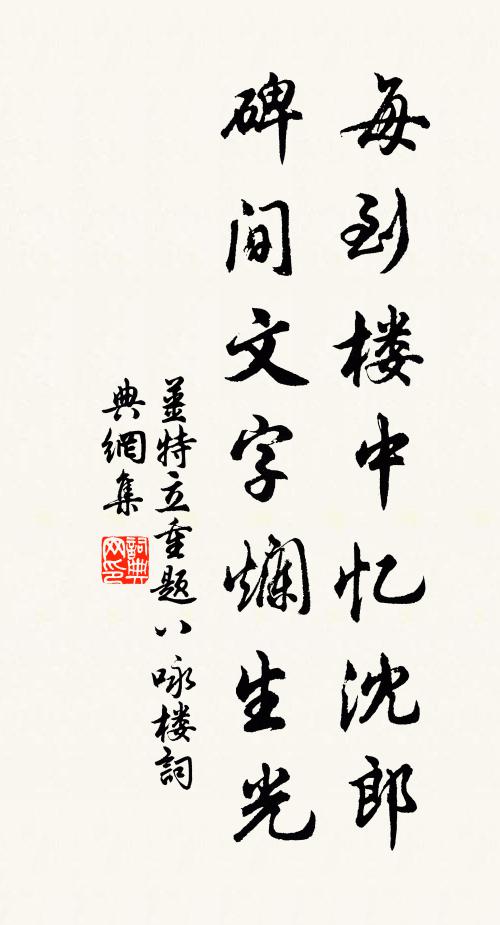 每到楼中忆沈郎
碑间文字烂生光
姜特立重题八咏楼詞
典網集
詞典網印